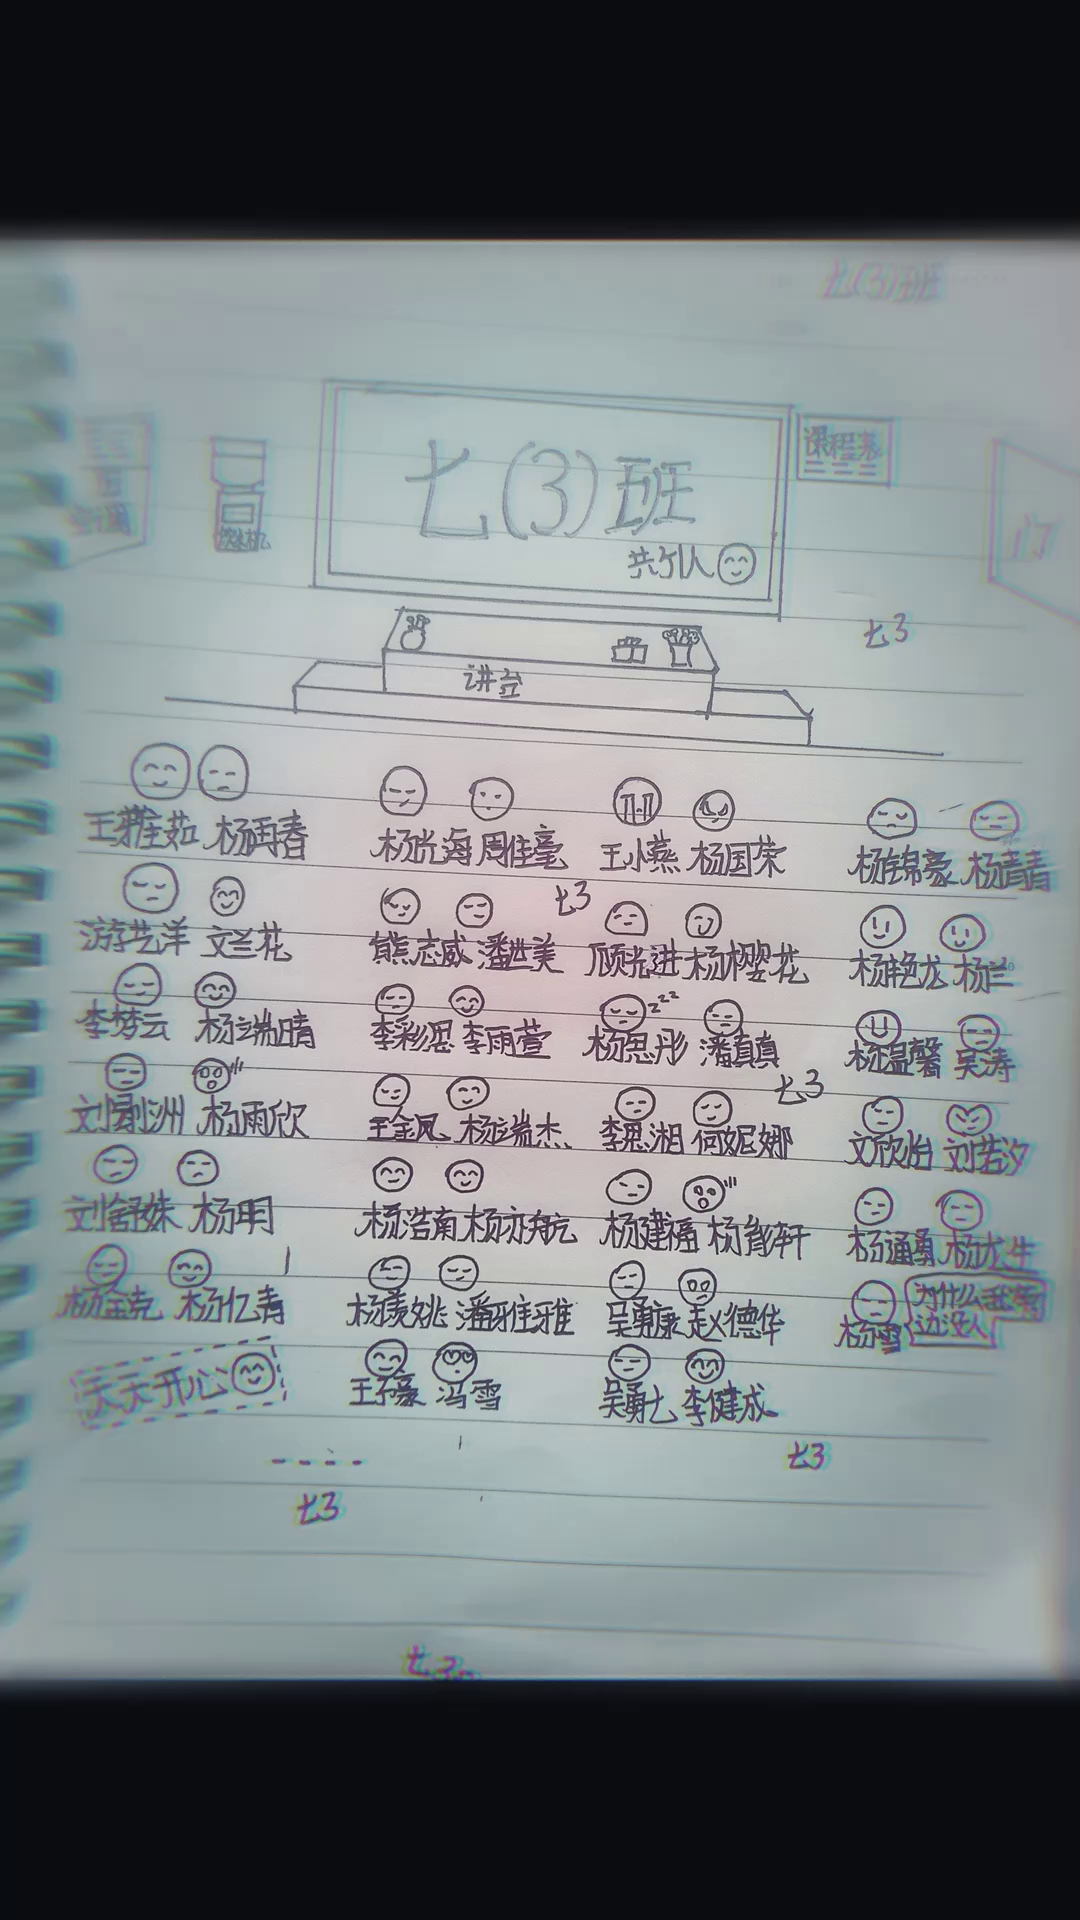 七(3)班
课程表
七(3)班
饮水机
门
共 个人
七3
讲台
王雅茹 杨再春 杨光海 周佳豪 王小燕 杨国荣 杨锦豪 杨青青
七3
游艺洋 文兰花 熊志威 潘世美 顾光进 杨樱花 杨艳龙 杨兰
李梦云 杨端晴 李彩恩 李雨萱 杨思彤 潘真真 杨温馨 吴涛
zzz
七3
杨雨欣 王金凤 杨端杰 李思湘 何妮娜 文欣怡 刘若汐
刘舒妹 杨明 杨浩南 杨亦航 杨建福 杨能轩 杨通勇 杨龙生
杨金克 杨亿青 杨美姚 潘雅雅 吴勇康 赵德华 杨雪
为什么我旁边没人
天天开心 王子豪 冯雪 吴勇七 李健成
七3
七3
七3